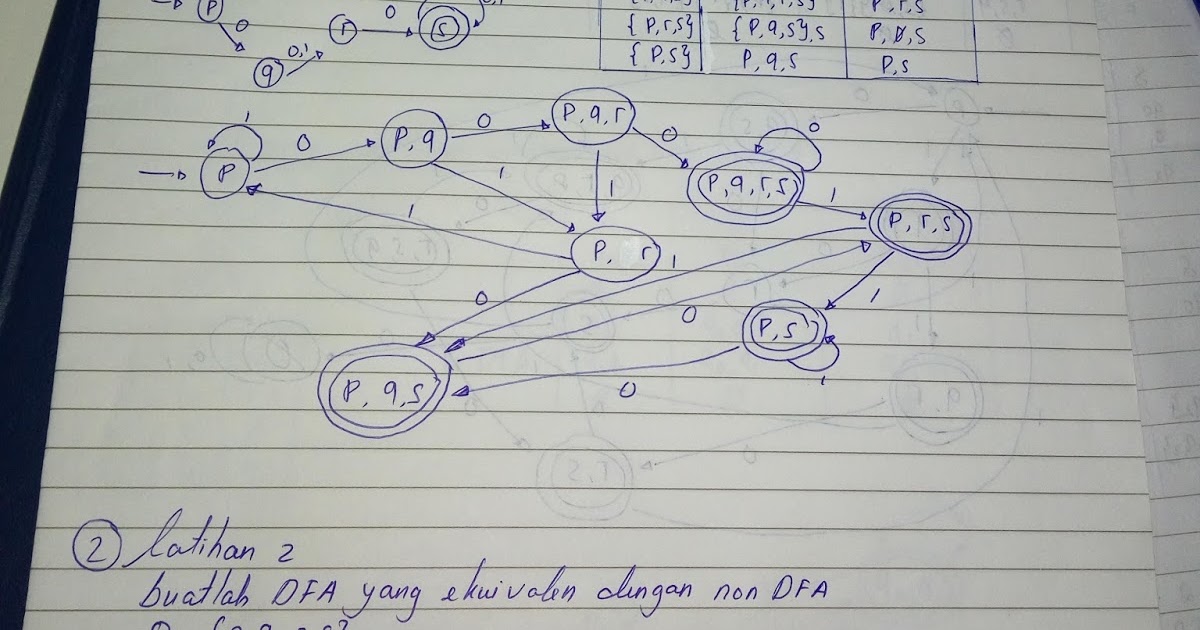 P
0
q
0,1
r
0
s
{P,r,s} {P,q,s},s P,ø,s
{P,s} P,q,s P,s
P
1
0
P,q
0
P,q,r
0
P,q,r,s
0
1
P,r,s
1
1
1
P, r
1
0
0
1
P,s
1
0
P,q,s
2 latihan 2
buatlah DFA yang ekuivalen dengan non DFA